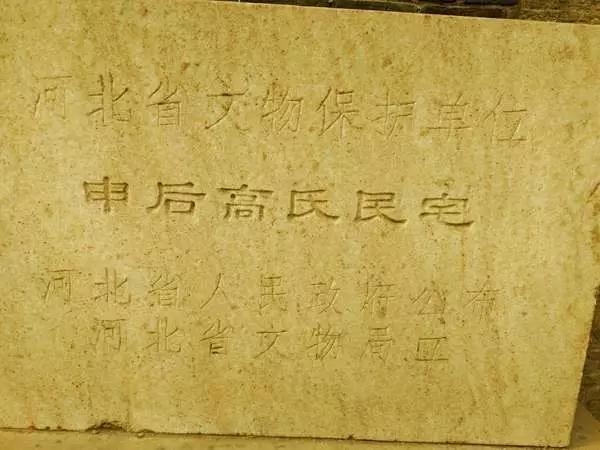 河北省文物保护单位
申后高氏民宅
河北省人民政府公布
河北省文物局立